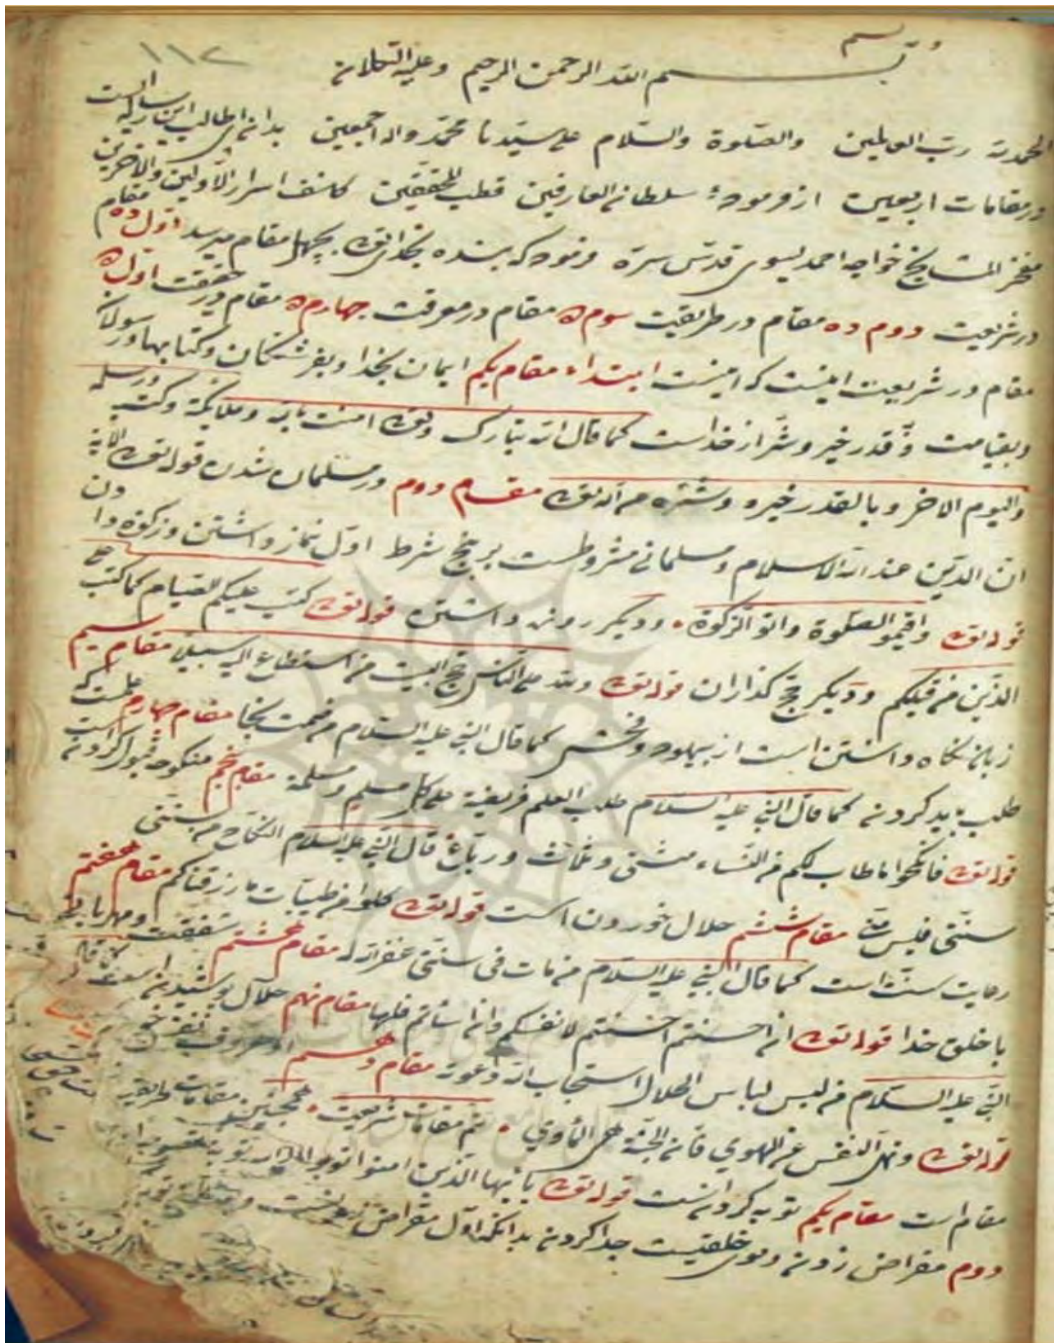 ۱۱۲
بسم الله الرحمن الرحیم وعلیه التکلان
الحمدلله رب العالمین والصلوة والسلام علی سیدنا محمد واله اجمعین بدان ای طالب این رساله ایست
در مقامات اربعین از فرموده سلطان العارفین قطب المحققین کاشف اسرار الاولین والاخرین
مفخر المشایخ خواجه احمد یسوی قدس سره فرموده که بنده بخدایتعالی بچهل مقام میرسد اول ده مقام
در شریعت دوم ده مقام در طریقت سوم ده مقام در معرفت چهارم ده مقام در حقیقت اول ده
مقام در شریعت اینست که اینست ابتداء مقام یکم ایمان بخدا وبفرشتگان وکتابها ورسولان
وبقیامت وقدر خیر وشر از خداست کما قال الله تبارک وتعالی امنت بالله وملایکته وکتبه ورسله
والیوم الاخر وبالقدر خیره وشره من الله تعالی مقام دوم در مسلمان شدن قوله تعالی الایة
ان الدین عند الله الاسلام ومسلمانی مشروطست بر پنج شرط اول نماز داشتن وزکوة دادن
قوله تعالی واقیموا الصلوة واتوا الزکوة ودیگر روزه داشتن قوله تعالی کتب علیکم الصیام کما کتب علی
الذین من قبلکم ودیگر حج گذاردن قوله تعالی ولله علی الناس حج البیت من استطاع الیه سبیلا مقام سیم
زبان نگاه داشتن است از بیهوده وفحش کما قال النبی علیه السلام من صمت نجا مقام چهارم علمست که
طلب باید کردن کما قال النبی علیه السلام طلب العلم فریضة علی کل مسلم ومسلمة مقام پنجم منکوحه قبول کردن است
قوله تعالی فانکحوا ما طاب لکم من النساء مثنی وثلاث ورباع قال النبی علیه السلام النکاح من سنتی
سنتی فلیس منی مقام ششم حلال خوردن است قوله تعالی کلوا من طیبات ما رزقناکم مقام هفتم
رعایت سنت است کما قال النبی علیه السلام من مات فی سنتی غفر الله له مقام هشتم شفقت ومهربانی
با خلق خدا قوله تعالی ان احسنتم احسنتم لانفسکم وان اساتم فلها مقام نهم حلال پوشیدن است کما قال
النبی علیه السلام من لبس لباس الحلال استجاب الله دعوته مقام دهم امر معروف
قوله تعالی ونهی النفس عن الهوی فان الجنة هی المأوی تم مقامات شریعت همچنین مقامات طریقت
مقام است مقام یکم توبه کردنست قوله تعالی یا ایها الذین امنوا توبوا الی الله توبة نصوحا
دوم مقراض زدن وموی خلقیت جدا کردن بدانکه اول مقراض